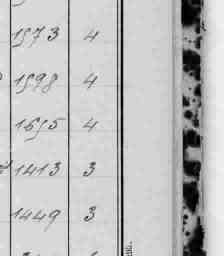 1573 4
1598 4
1655 4
1413 3
1449 3